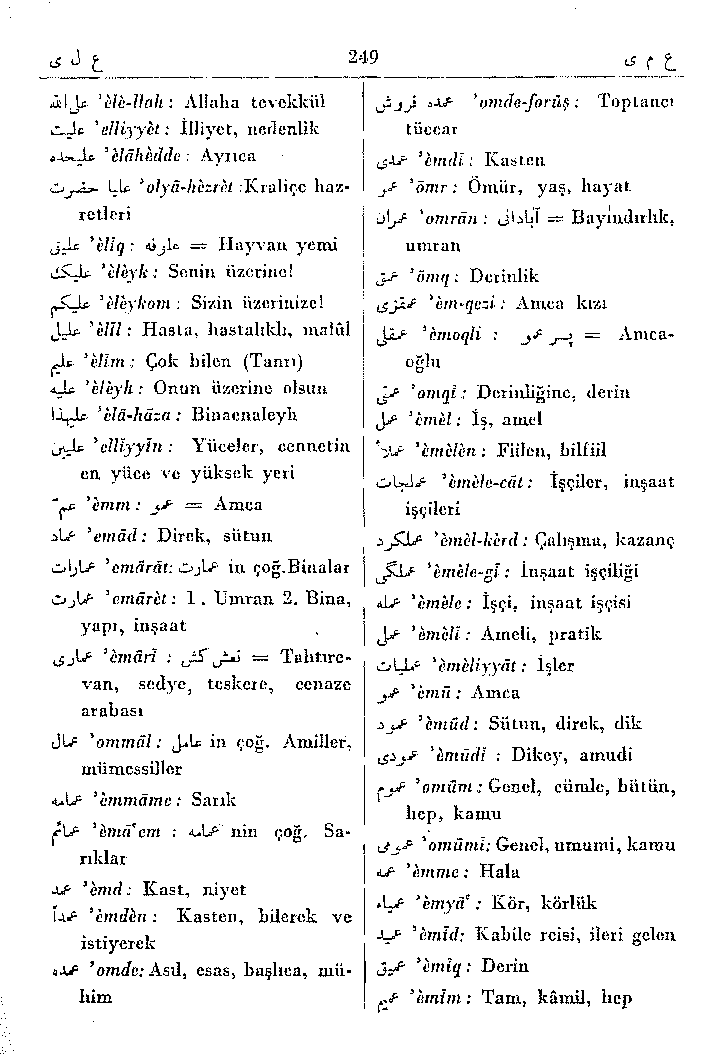 ع ل ی 249 ع م ی
علی‌الله ’èlè-llah : Allaha tevekkül
علیت ’elliyyèt : İlliyet, nedenlik
علیحده ’èlâhèdde : Ayrıca
علیا حضرت ’olyâ-hèzrèt : Kraliçe haz-
retleri
علیق ’èliq : علوفه = Hayvan yemi
علیک ’èlèyk : Senin üzerine!
علیکم ’èlèykom : Sizin üzerinize!
علیل ’èlîl : Hasta, hastalıklı, malûl
علیم ’èlîm : Çok bilen (Tanrı)
علیه ’èlèyh : Onun üzerine olsun
علیهذا ’èlâ-hâza : Binaenaleyh
علیین ’elliyyîn : Yüceler, cennetin
en yüce ve yüksek yeri
عم ’èmm : عمو = Amca
عماد ’emâd : Direk, sütun
عمارات ’emârât: عمارت in çoğ.Binalar
عمارت ’emârèt : 1. Umran 2. Bina,
yapı, inşaat
عماری ’èmârî : نعش کش = Tahtıre-
van, sedye, teskere, cenaze
arabası
عمال ’ommâl : عامل in çoğ. Amiller,
mümessiller
عمامه ’èmmâme : Sarık
عمائم ’èmâ'em : عمامه nin çoğ. Sa-
rıklar
عمد ’èmd : Kast, niyet
عمداً ’èmdèn : Kasten, bilerek ve
istiyerek
عمده ’omde: Asıl, esas, başlıca, mü-
him
عمده فروش ’omde-forûş : Toptancı
tüccar
عمدی ’èmdî : Kasten
عمر ’ömr : Ömür, yaş, hayat
عمران ’omrân : آبادانی = Bayındırlık,
umran
عمق ’ömq : Derinlik
عمقزی ’èm-qezi : Amca kızı
عمقلی ’èmoqli : پسر عمو = Amca-
oğlu
عمقی ’omqî : Derinliğine, derin
عمل ’èmèl : İş, amel
عملاً ’èmèlèn : Fiilen, bilfiil
عملجات ’èmèle-cât : İşçiler, inşaat
işçileri
عملکرد ’èmèl-kèrd : Çalışma, kazanç
عملگی ’èmèle-gî : İnşaat işçiliği
عمله ’èmèle : İşçi, inşaat işçisi
عملی ’èmèlî : Ameli, pratik
عملیات ’èmèliyyât : İşler
عمو ’èmû : Amca
عمود ’èmûd : Sütun, direk, dik
عمودی ’èmûdî : Dikey, amudi
عموم ’omûm : Genel, cümle, bütün,
hep, kamu
عمومی ’omûmî: Genel, umumi, kamu
عمه ’èmme : Hala
عمیاء ’èmyâ' : Kör, körlük
عمید ’èmîd: Kabile reisi, ileri gelen
عمیق ’èmîq : Derin
عمیم ’èmîm : Tam, kâmil, hep